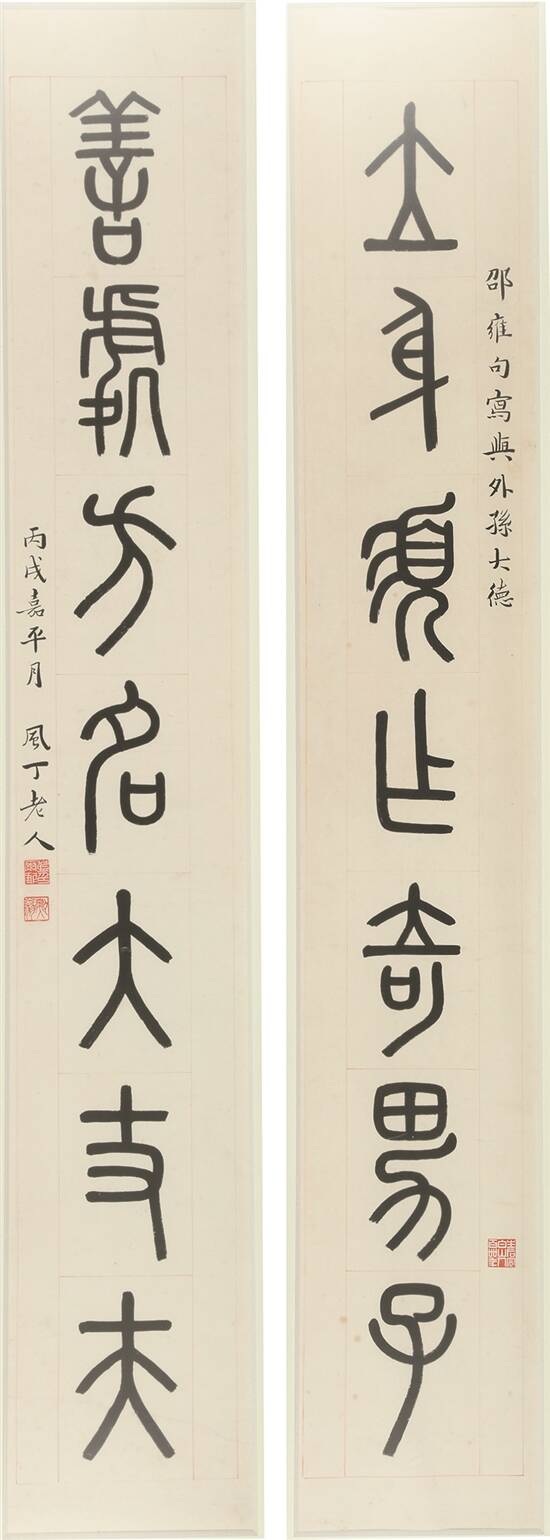 邵雍句寫與外孫大德
立身須乍奇男子
善處方名大丈夫
丙戌嘉平月 風丁老人